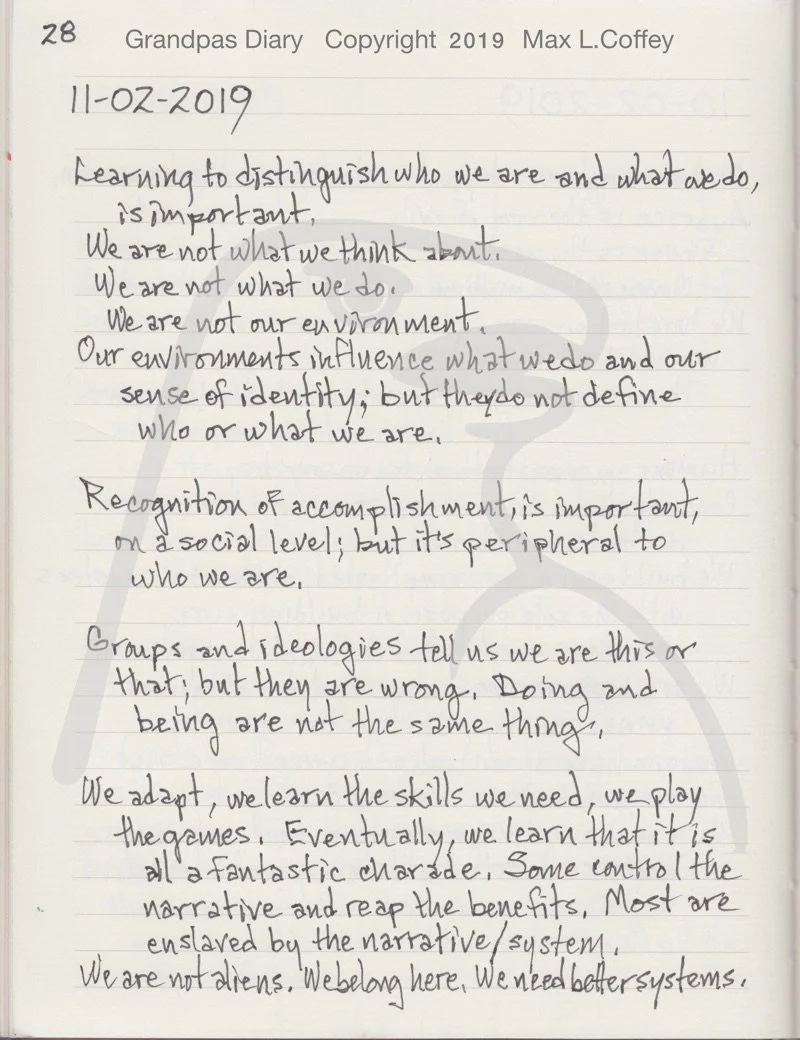 28
Grandpas Diary Copyright 2019 Max L.Coffey
11-02-2019
Learning to distinguish who we are and what we do,
is important.
We are not what we think about.
We are not what we do.
We are not our environment.
Our environments influence what we do and our
sense of identity; but they do not define
who or what we are.
Recognition of accomplishment, is important,
on a social level; but it's peripheral to
who we are.
Groups and ideologies tell us we are this or
that; but they are wrong. Doing and
being are not the same thing.
We adapt, we learn the skills we need, we play
the games. Eventually, we learn that it is
all a fantastic charade. Some control the
narrative and reap the benefits. Most are
enslaved by the narrative/system.
We are not aliens. We belong here. We need better systems.